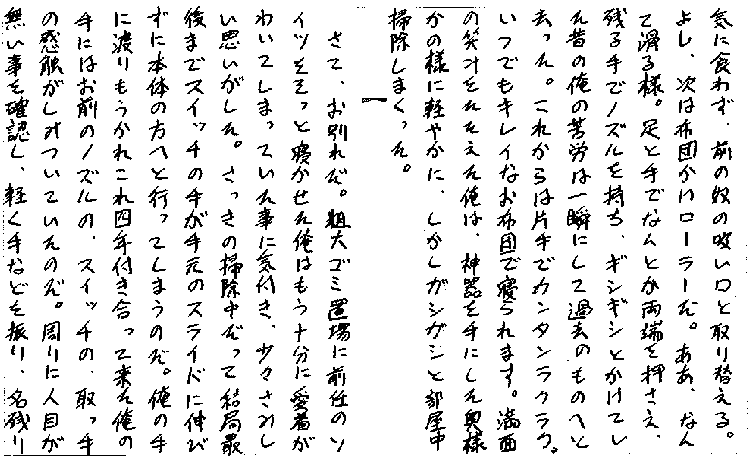 気に食わず、前の奴の吸い口と取り替える。
よし、次は布団かけローラーだ。ああ、なん
て滑る様。足と手でなんとか両端を押さえ、
残る手でノズルを持ち、ギシギシとかけてい
た昔の俺の苦労は一瞬にして過去のものへと
去った。これからは片手でカンタンラクラク。
いつでもキレイなお布団で寝られます。満面
の笑みをたたえた俺は、神器を手にした奥様
かの様に軽やかに、しかしガシガシと部屋中
掃除しまくった。
さて、お別れだ。粗大ゴミ置場に前任のソ
イツをそっと寝かせた俺はもう十分に愛着が
わいてしまっていた事に気付き、少々さみし
い思いがした。さっきの掃除中だって結局最
後までスイッチの手が手元のスライドに伸び
ずに本体の方へと行ってしまうのだ。俺の手
に渡りもうかれこれ四年付き合って来た俺の
手にはお前のノズルの、スイッチの、取っ手
の感触がしみついていたのだ。周りに人目が
無い事を確認し、軽く手などを振り、名残り